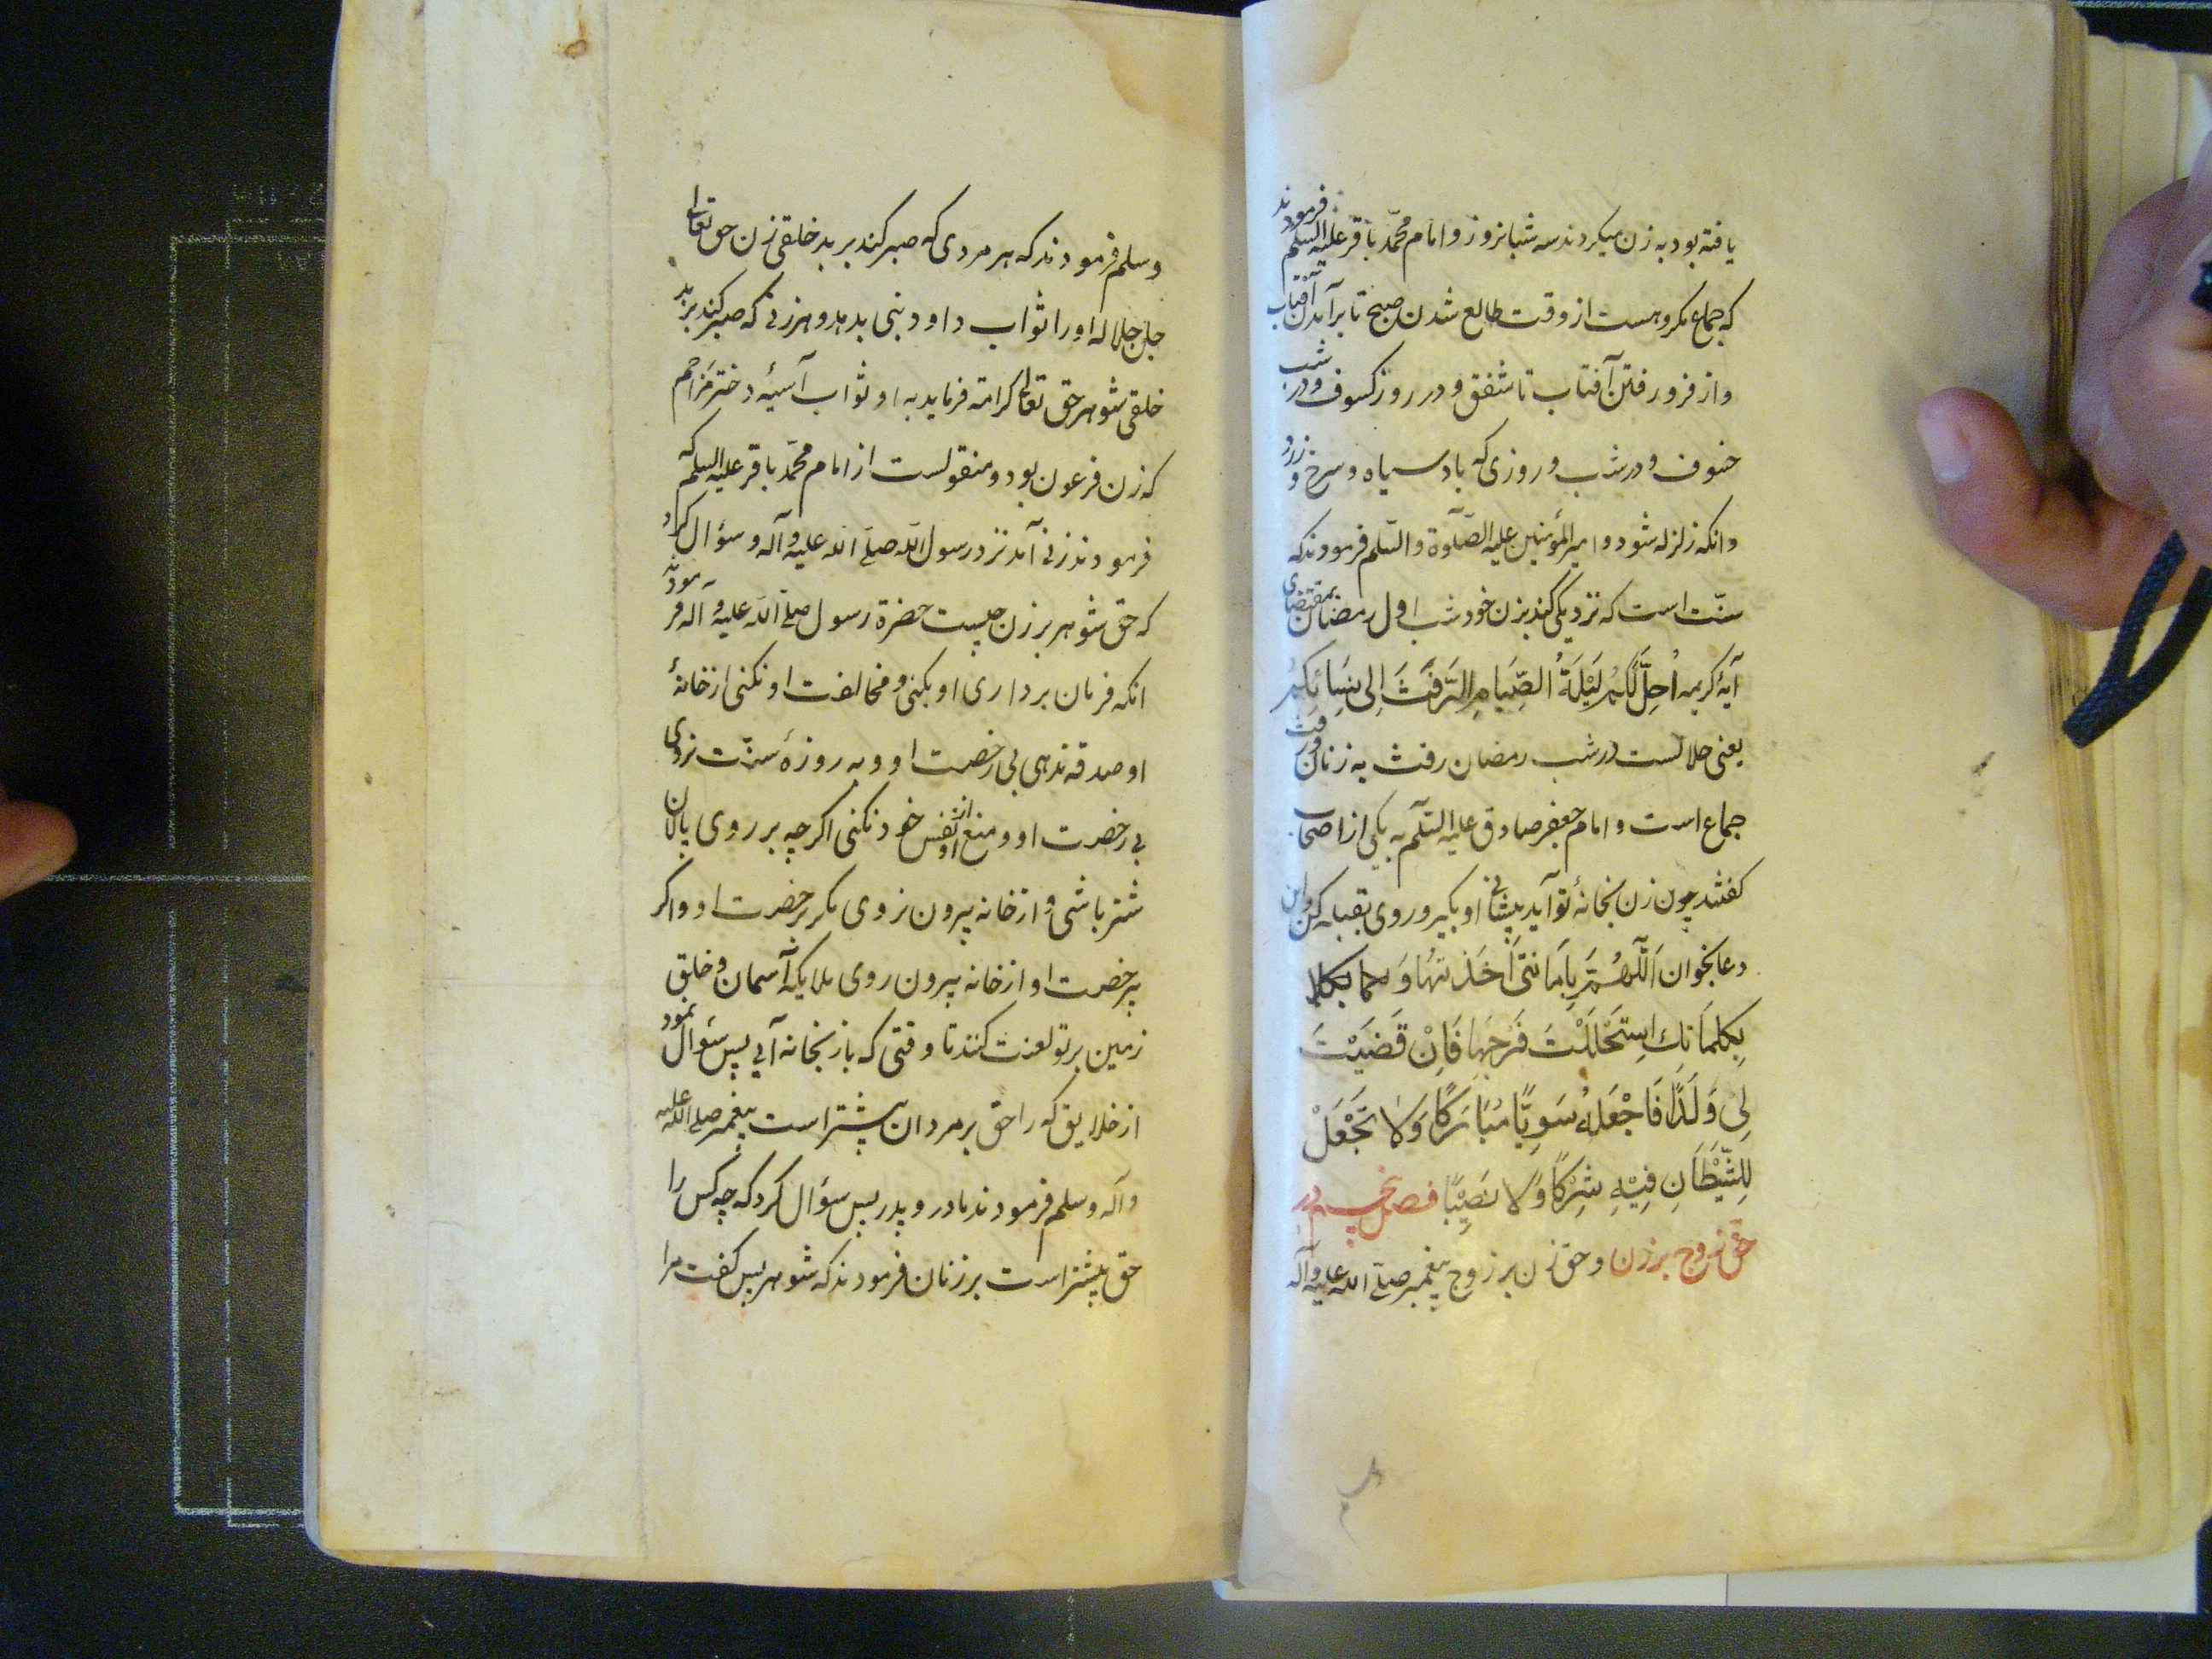 یافته بود به زن میکردند سه شبانروز و امام محمّد باقر علیه السلم فرمودند
که جماع مکروهست از وقت طالع شدن صبح تا برآمدن آفتاب
و از فرو رفتن آفتاب تا شفق و در روز کسوف و در شب
خسوف و در شب و روزی که باد سیاه و سرخ و زرد
و انکه زلزله شود و امیرالمؤمنین علیه الصّلوة والسّلم فرمودند که
سنّت است که نزدیکی کند بزن خود شب اول رمضان بمقتضای
آیهٔ کریمه اُحِلَّ لَکُمْ لَیْلَةُ الصِّیَامِ الرَّفَثَ اِلی نِسَائِکُمْ
یعنی حلالست در شب رمضان رفث به زنان و رفث
جماع است و امام جعفر صادق علیه السّلم به یکی از اصحاب
کفتند چون زن بخانهٔ تو آید پیشانی او بکیر و روی بقبله کن و این
دعا بخوان اَللّهُمَّ بِاَمَانَتِیٓ اَخَذْتُهَا وَ
بِکَلِمَاتِكَ اسْتَحْلَلْتَ فَرْجَهَا فَاِنْ قَضَیْتَ
لِیْ وَلَدًا فَاجْعَلْهُ سَوِیًّا مُبَارَکًا وَلَا تَجْعَلْ
لِلشَّیْطَانِ فِیْهِ شِرْکًا وَلَا نَصِیْبًا فصل پنجم در
حقّ زوج بر زن و حق زن بر زوج پیغمبر صلّی الله علیه وآله
وسلم فرمودند که هر مردی که صبر کند بر بد خلقی زن حق تعالی
جل جلاله او را ثواب داود نبی بدهد و هر زنی که صبر کند بر بد
خلقی شوهر حق تعالی کرامته فرماید به او ثواب آسیهٔ دختر مزاحم
که زن فرعون بود و منقولست از امام محمّد باقر علیه السلم که
فرمودند زنی آمد نزد رسول الله صلی الله علیه وآله و سؤال کرد
که حق شوهر بر زن چیست حضرة رسول صلی الله علیه وآله فرمود
انکه فرمان برداری او بکنی و مخالفت او نکنی از خانهٔ
او صدقه ندهی بی رخصت او و به روزهٔ سنّت نروی
بی رخصت او و منع او از نفس خود نکنی اکر چه بر روی پالان
شتر باشی و از خانه بیرون نروی مکر برخصت او و اکر
بی رخصت او از خانه بیرون روی ملایکهٔ آسمان و خلق
زمین بر تو لعنت کنند تا وقتی که باز بخانه آیی پس سؤال نمود
از خلایق که را حق بر مردان بیشتر است پیغمبر صلی الله علیه
وآله وسلم فرمودند مادر و پدر پس سؤال کرد که چه کس را
حق بیشتر است بر زنان فرمودند که شوهر پس کفت مرا